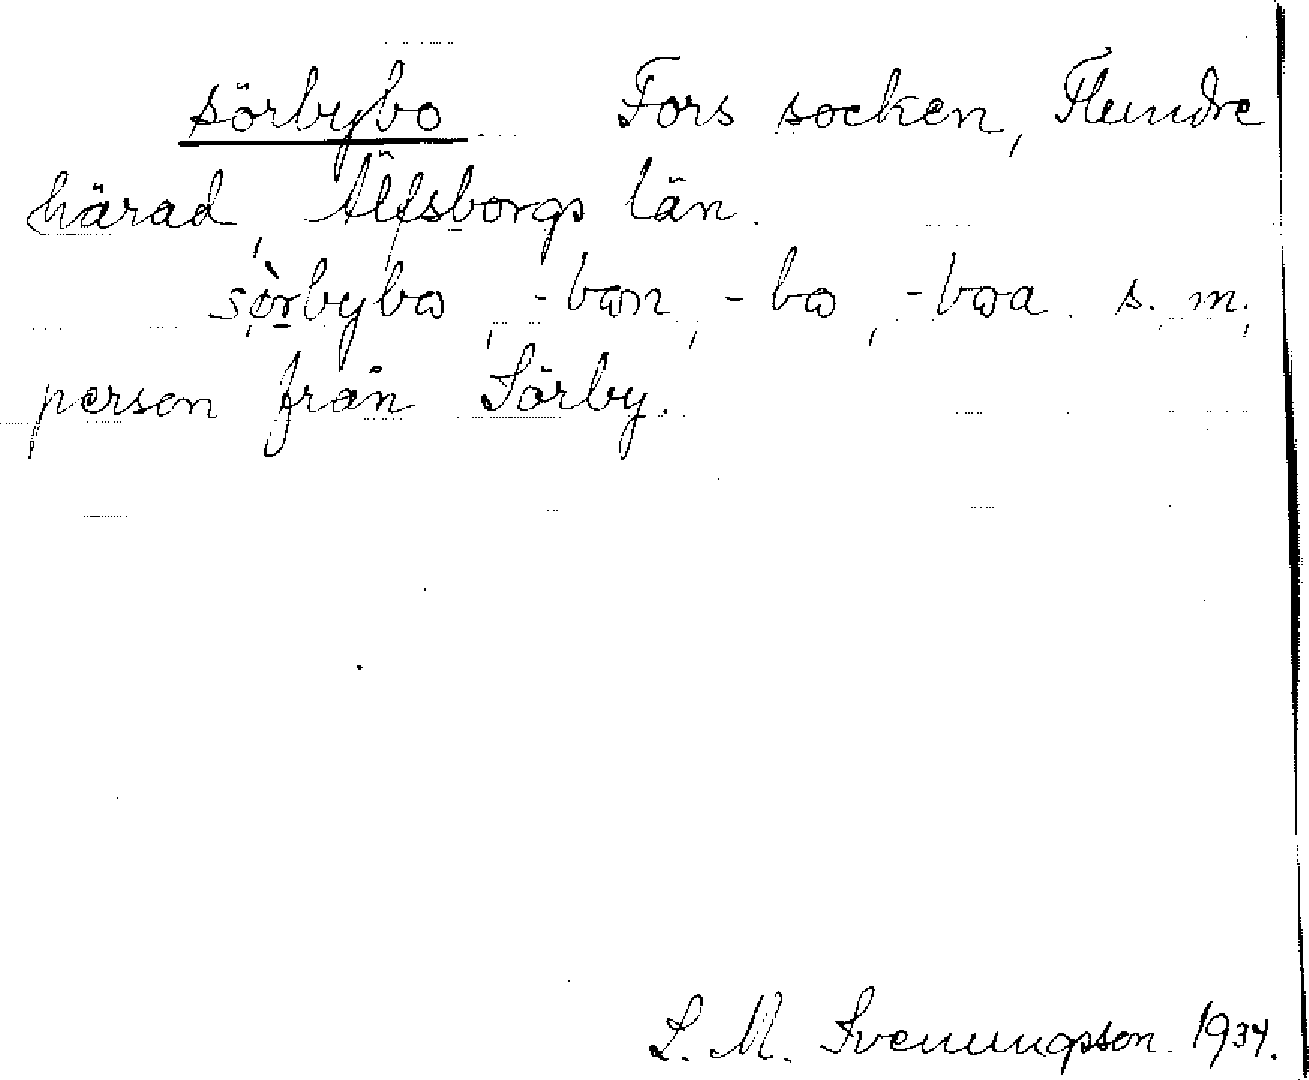 sörbybo Fors socken, Flundre
härad, Älfsborgs län.
sørbybω, -bωn, -bω, -bωa. s. m.,
person från Sörby.
L. M. Svenungsson. 1934.